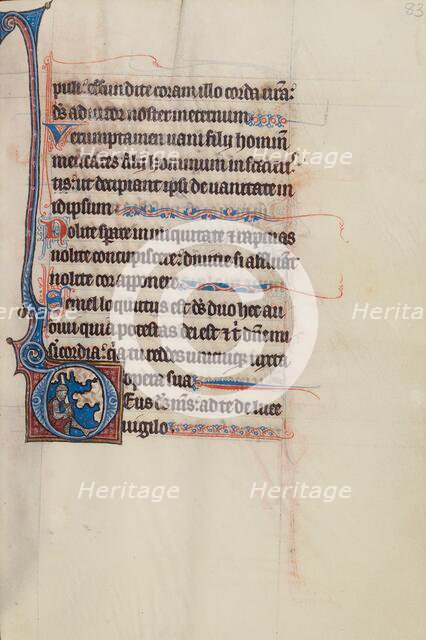 83
puli: effundite coram illo corda ura:
ds adiutor noster in eternum
Verumptamen uani filij hominum
mendaces filij hominum in stateris
tis: ut decipiant ipsi de uanitate in
idipsum
Nolite sperare in iniquitate & rapinas
nolite concupiscere: diuitie si affluant
nolite cor apponere
Semel locutus est ds duo hec au
diui quia potestas dei est & t dne mi
sericordia: qa tu reddes unicuiqz iuxta
opera sua
Deus ds ms: ad te de luce
uigilo
Heritage Heritage Heritage
Heritage Heritage Heritage
Heritage Heritage Heritage